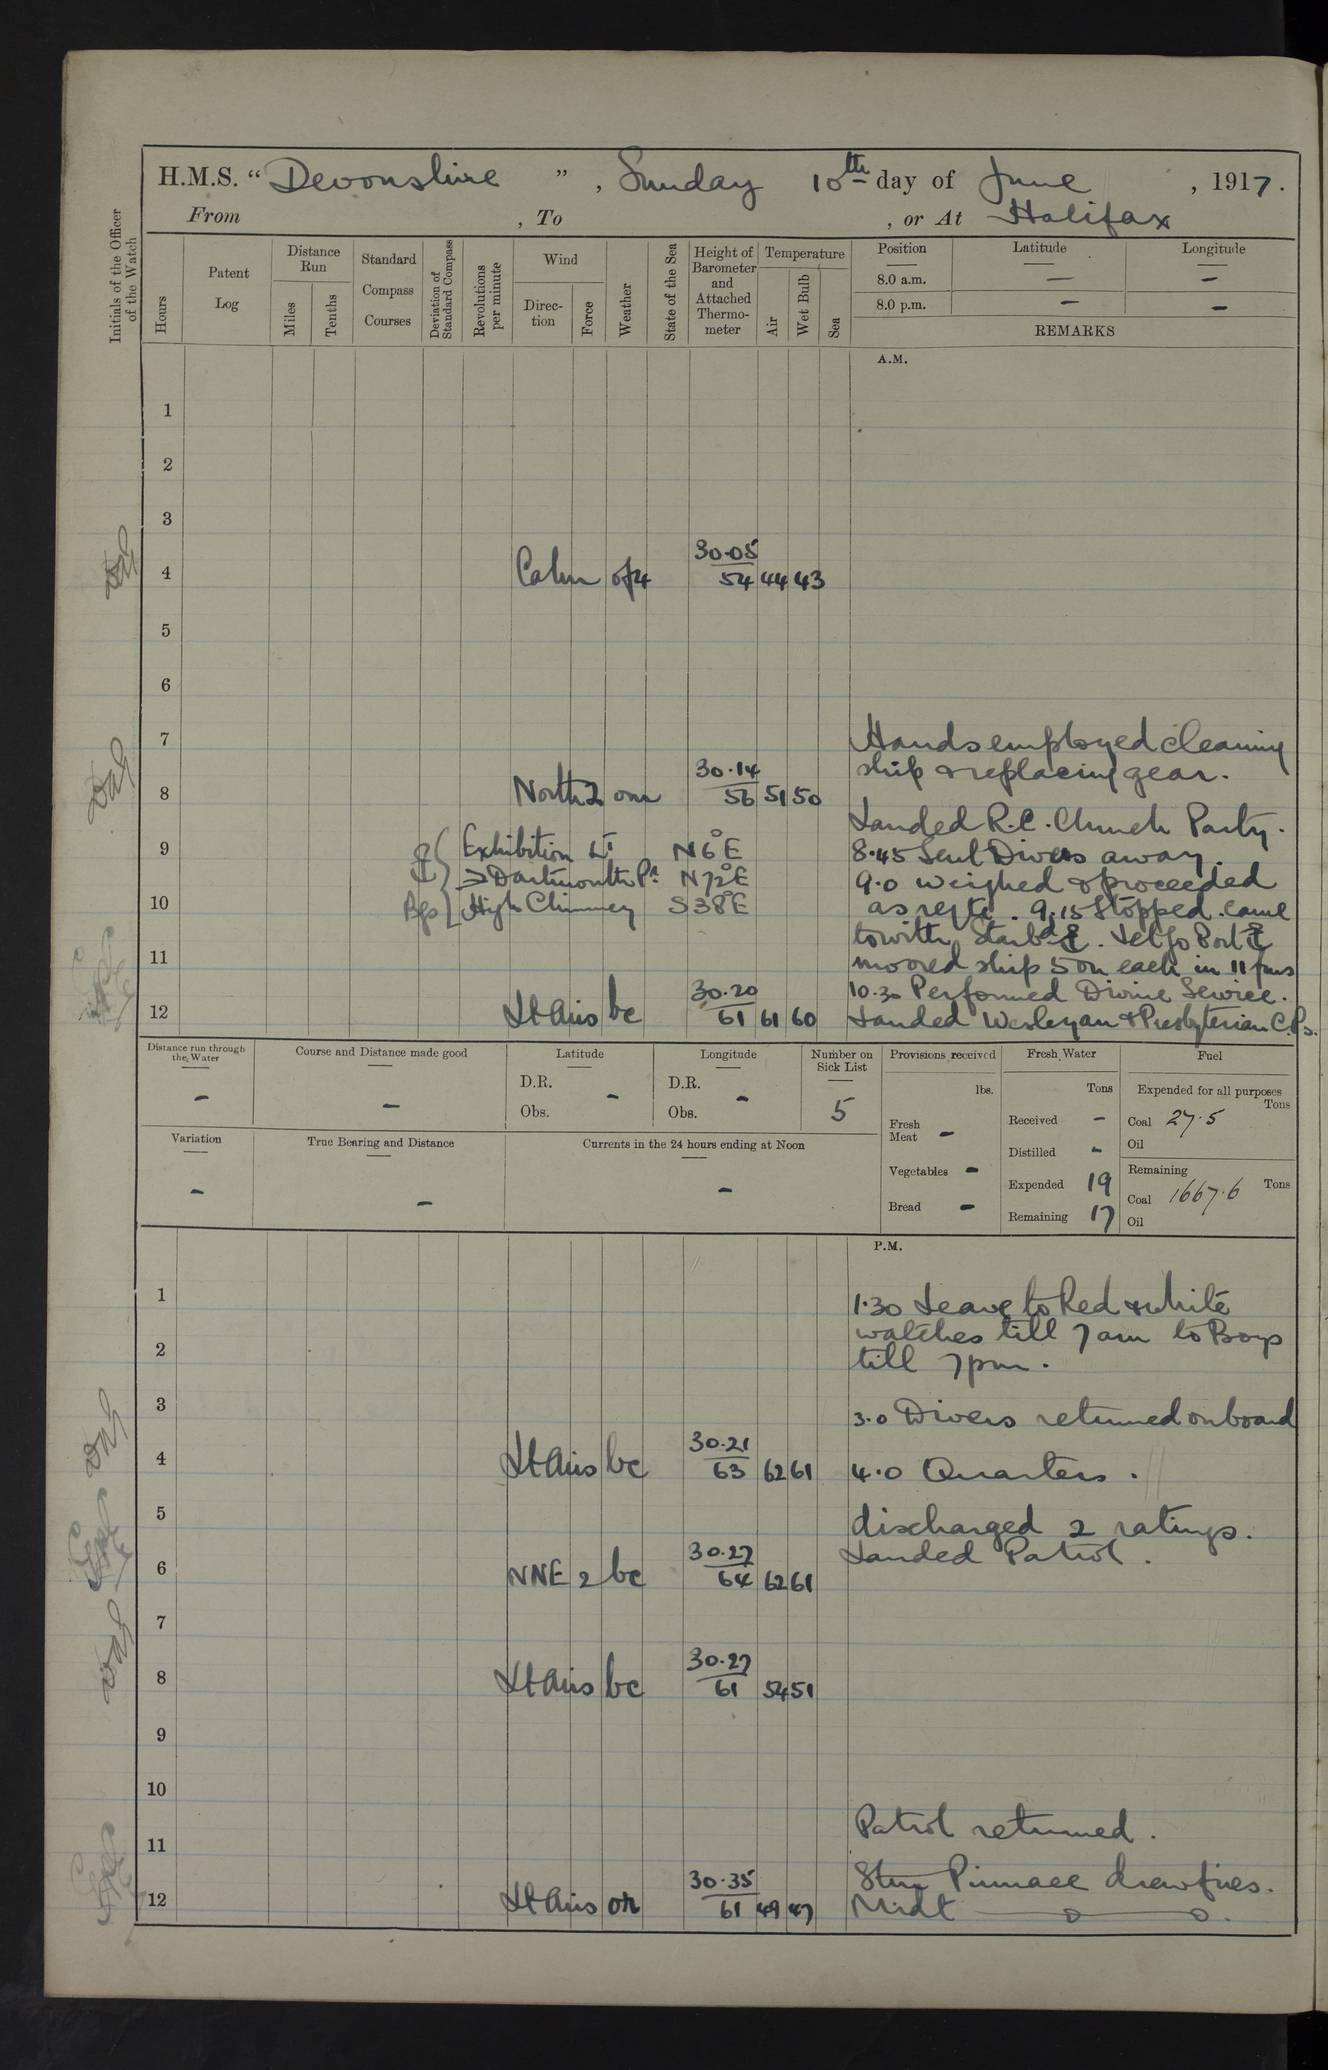 H.M.S. “ Devonshire ” , Sunday 10th day of June , 1917.
From , To , or At Halifax
Initials of the Officer of the Watch
Hours
Patent Log
Distance Run
Miles
Tenths
Standard Compass Courses
Deviation of Standard Compass
Revolutions per minute
Wind
Direc-tion
Force
Weather
State of the Sea
Height of Barometer and Attached Thermo-meter
Temperature
Air
Wet Bulb
Sea
Position Latitude Longitude
8.0 a.m. — —
8.0 p.m. — —
REMARKS
A.M.
1
2
3
4 Calm of4 30.05 54 44 43
5
6
7 Hands employed cleaning
ship & replacing gear.
8 North 2 om 30.14 56 51 50
Landed R.C. Church Party.
9 Exhibition Lt N 6° E 8.45 Sent Divers away.
Dartmouth Pt N 72° E 9.0 weighed & proceeded
10 Bgs High Chimney S 38° E as reqte. 9.15 Stopped. came
to with Starbd ⚓. Let go Port ⚓
11 moored ship 5 on each in 11 fms
10.30 Performed Divine Service.
12 Lt Airs bc 30.20 61 61 60 Landed Wesleyan & Presbyterian C.Ps.
Distance run through the Water
Course and Distance made good
Latitude
D.R.
Obs.
Longitude
D.R.
Obs.
Number on Sick List
5
Provisions received
lbs.
Fresh Meat -
Vegetables -
Bread -
Fresh Water
Tons
Received -
Distilled -
Expended 19
Remaining 17
Fuel
Expended for all purposes
Tons
Coal 27.5
Oil
Remaining
Coal 1667.6 Tons
Oil
Variation
-
True Bearing and Distance
-
Currents in the 24 hours ending at Noon
-
P.M.
1 1.30 Leave to Red & white
watches till 7 am to Boys
2 till 7pm.
3 3.0 Divers returned onboard
4 Lt Airs bc 30.21 63 62 61 4.0 Quarters.
5 discharged 2 ratings.
Landed Patrol.
6 NNE 2 bc 30.27 64 62 61
7
8 Lt Airs bc 30.27 61 54 51
9
10
Patrol returned.
11
Stm Pinnace drew fires.
12 Lt Airs or 30.35 61 49 47 Midt